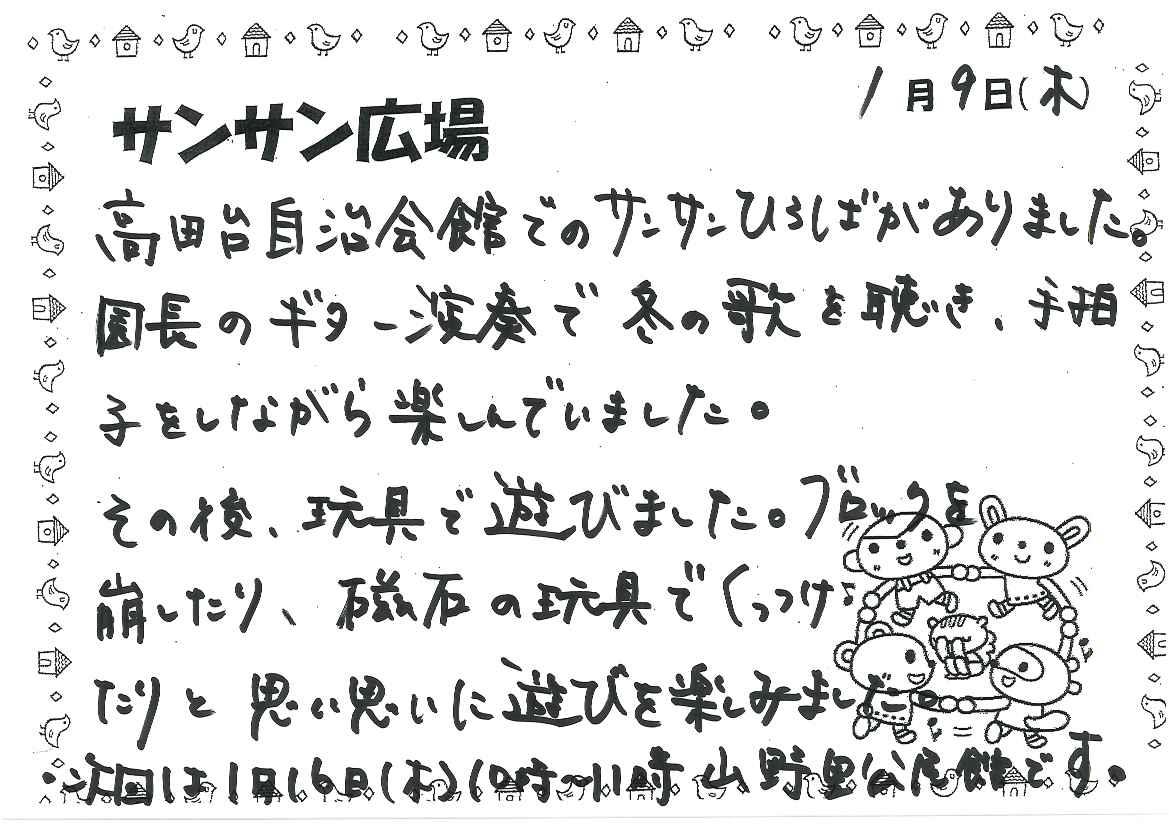 1月9日(木)
サンサン広場
高田台自治会館でのサンサンひろばがありました。
園長のギター演奏で冬の歌を聴き、手拍
子をしながら楽しんでいました。
その後、玩具で遊びました。ブロックを
崩したり、磁石の玩具でくっつけ
たりと思い思いに遊びを楽しみました。
・次回は1月16日(木)10時~11時山野里公民館です。